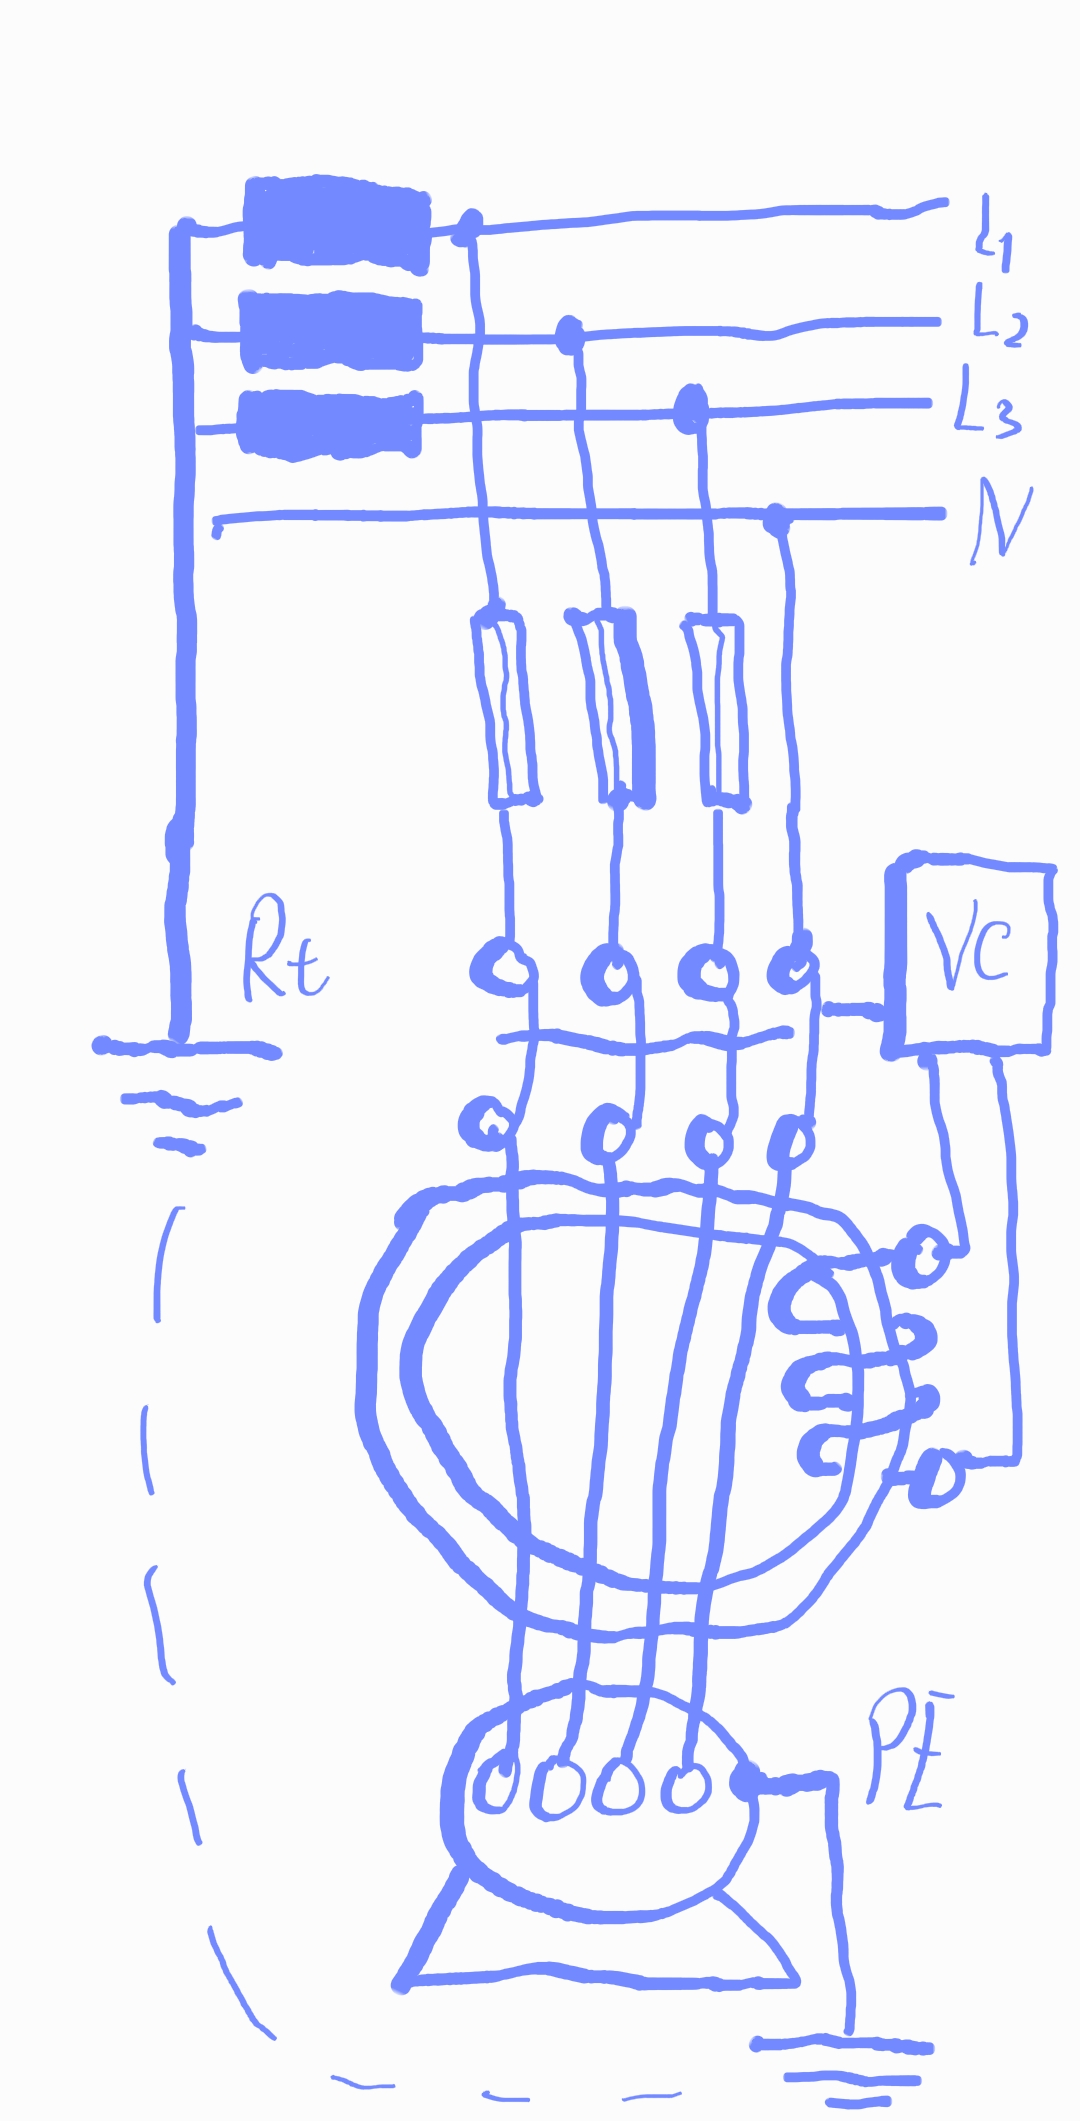 L1
L2
L3
N
Rt
VC
PE